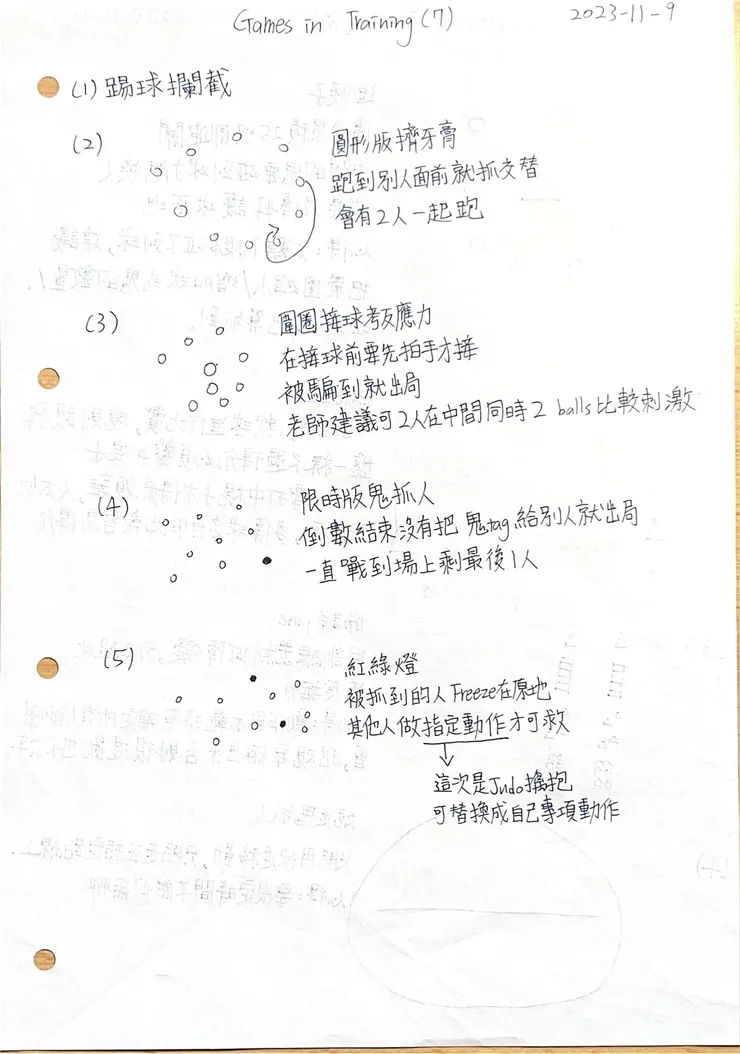 Games in Training (7)
2023-11-9
(1) 踢球攔截
(2)
圓形版擠牙膏
跑到別人面前就抓交替
會有2人一起跑
(3)
圍圈接球考反應力
在接球前要先拍手才接
被騙到就出局
老師建議可2人在中間同時2 balls比較刺激
(4)
限時版鬼抓人
倒數結束沒有把鬼tag給別人就出局
一直戰到場上剩最後1人
(5)
紅綠燈
被抓到的人Freeze在原地
其他人做指定動作才可救
這次是Judo擒抱
可替換成自己專項動作